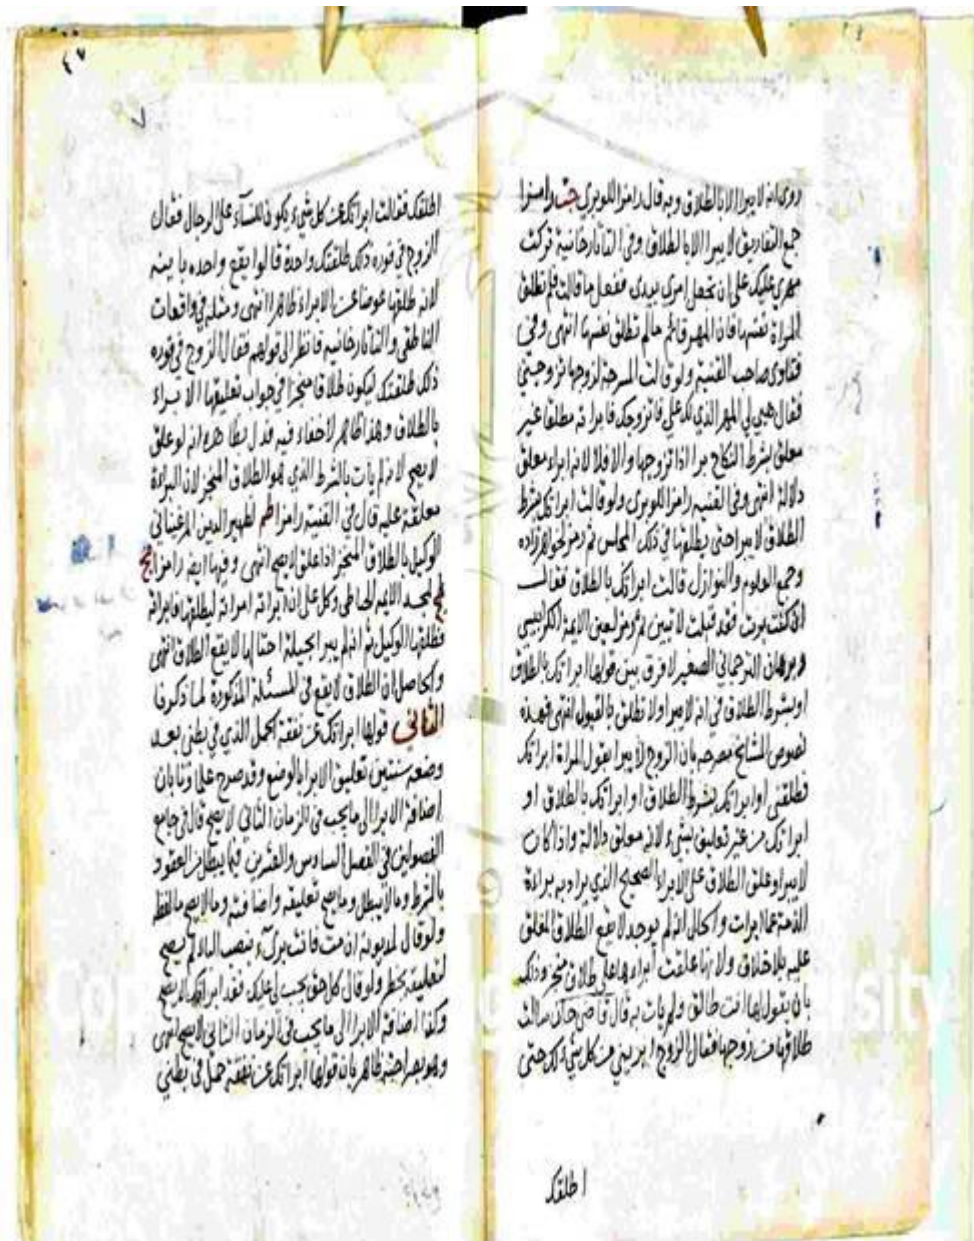 روى انه لا يبرا الا بالطلاق وبه قال رامزا للوبرى جت رامزا
جمع التفاريق لا يبرا الا بالطلاق وفى التاتارخانية تركت
مهرى عليك على ان تجعل امرى بيدى ففعل ما قالت فلم تطلق
المراة نفسها فان المهر قائم مالم تطلق نفسها انتهى وفى
فتاوى صاحب القنية ولو قالت المسرحة لزوجها تزوجنى
فقال هبي لي المهر الذي لك علي فاتزوجك فابراته مطلقا غير
معلق بشرط النكاح يبرا اذا تزوجها والا فلا لانه ابراء معلق
دلالة انتهى وفى القنيه رامزا للوبرى ولو قالت ابراتك بشرط
الطلاق لا يبرا حتى يطلقها في ذلك المجلس ثم رمز خواهرزاده
وجمع العلوم والنوازل قالت ابراتك بالطلاق فقالت
فقد قبلت لا تبين ثم رمز لعين الايمة الكرابيسي
وبرهان الترجماني الصغير لا فرق بين قولها ابراتك بالطلاق
او بشرط الطلاق في انه لا يبرا ولا تطلق بالقبول انتهى فهذه
نصوص المشايخ مصرحه بان الزوج لا يبرا بقول المراة ابراتك
فطلقنى او ابراتك بشرط الطلاق او ابراتك بالطلاق او
ابراتك من غير تعليق بشيء لانه معلق دلالة واذا كان
لا يبرا وعلق الطلاق على الابراء الصحيح الذي يراد به براءة
الذمة عما ابرات والحال انه لم يوجد لا يقع الطلاق المعلق
عليه بلا خلاف ولانها علقت ابراءها على طلاق منجز وذلك
بان يقول لها انت طالق ولم يات به قال قاضى خان سالت
طلاقها من زوجها فقال الزوج ابريني من كل شيء لك حتى
اطلقك
٤٧
اطلقك فقالت ابراتك عن كل شيء يكون للنساء على الرجال فقال
الزوج في فوره ذلك طلقتك واحدة قالوا يقع واحده باينه
لانه طلقها عوضا عن الابراء ظاهرا انتهى ومثله في واقعات
الناطفى والتاتارخانيه فانظر الى قولهم فقال الزوج في فوره
ذلك طلقتك ليكون طلاقا منجزا في جواب تعليقها الابراء
بالطلاق وهذا ظاهر لا خفاء فيه فدل بظاهره انه لو علق
لا يصح لانه لم يات بالشرط الذي هو الطلاق المنجز لان البراءة
معلقه عليه قال في القنية رامزا ظم لظهير الدين المرغيناني
الوكيل بالطلاق المنجز اذا علق لا يصح انتهى وفيها ايضا رامزا
لمجد الايمه وكل على انه ابراته امراته ليطلقها فابراته
فطلقها الوكيل ثم انه لم يبرا بحيلة لا يقع الطلاق انتهى
والحاصل ان الطلاق لا يقع في المسئلة المذكورة لما ذكرنا
الثاني قولها ابراتك عن نفقة الحمل الذي في بطنى بعد
وضعه سنتين تعليق الابرا بالوضع وقد صرح علماونا بان
اضافة الابرا الى ما يجب في الزمان الثاني لا يصح قال في جامع
الفصولين في الفصل السادس والعشرين فيما يبطل من العقود
بالشرط وما لا يبطل وما يصح تعليقه واضافته وما لا يصح ما لفظه
ولو قال لمديونه ان مت فانت برئ بنصب التاء لم يصح
لتعليقه بخطر ولو قال كل حق يجب لي عليك فقد ابراتك لا يصح
وكذا اضافة الابرا الى ما يجب في الزمان الثاني لا يصح انتهى
وهو بصراحته ظاهر بان قولها ابراتك عن نفقة حمل فى بطني